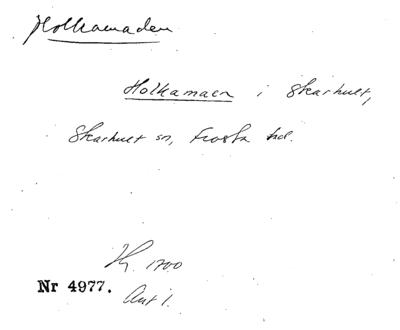 Holkamaden
Holkamaen i Skarhult,
Skarhult sn, Frosta hd.
1700
Nr 4977.
Ant 1.